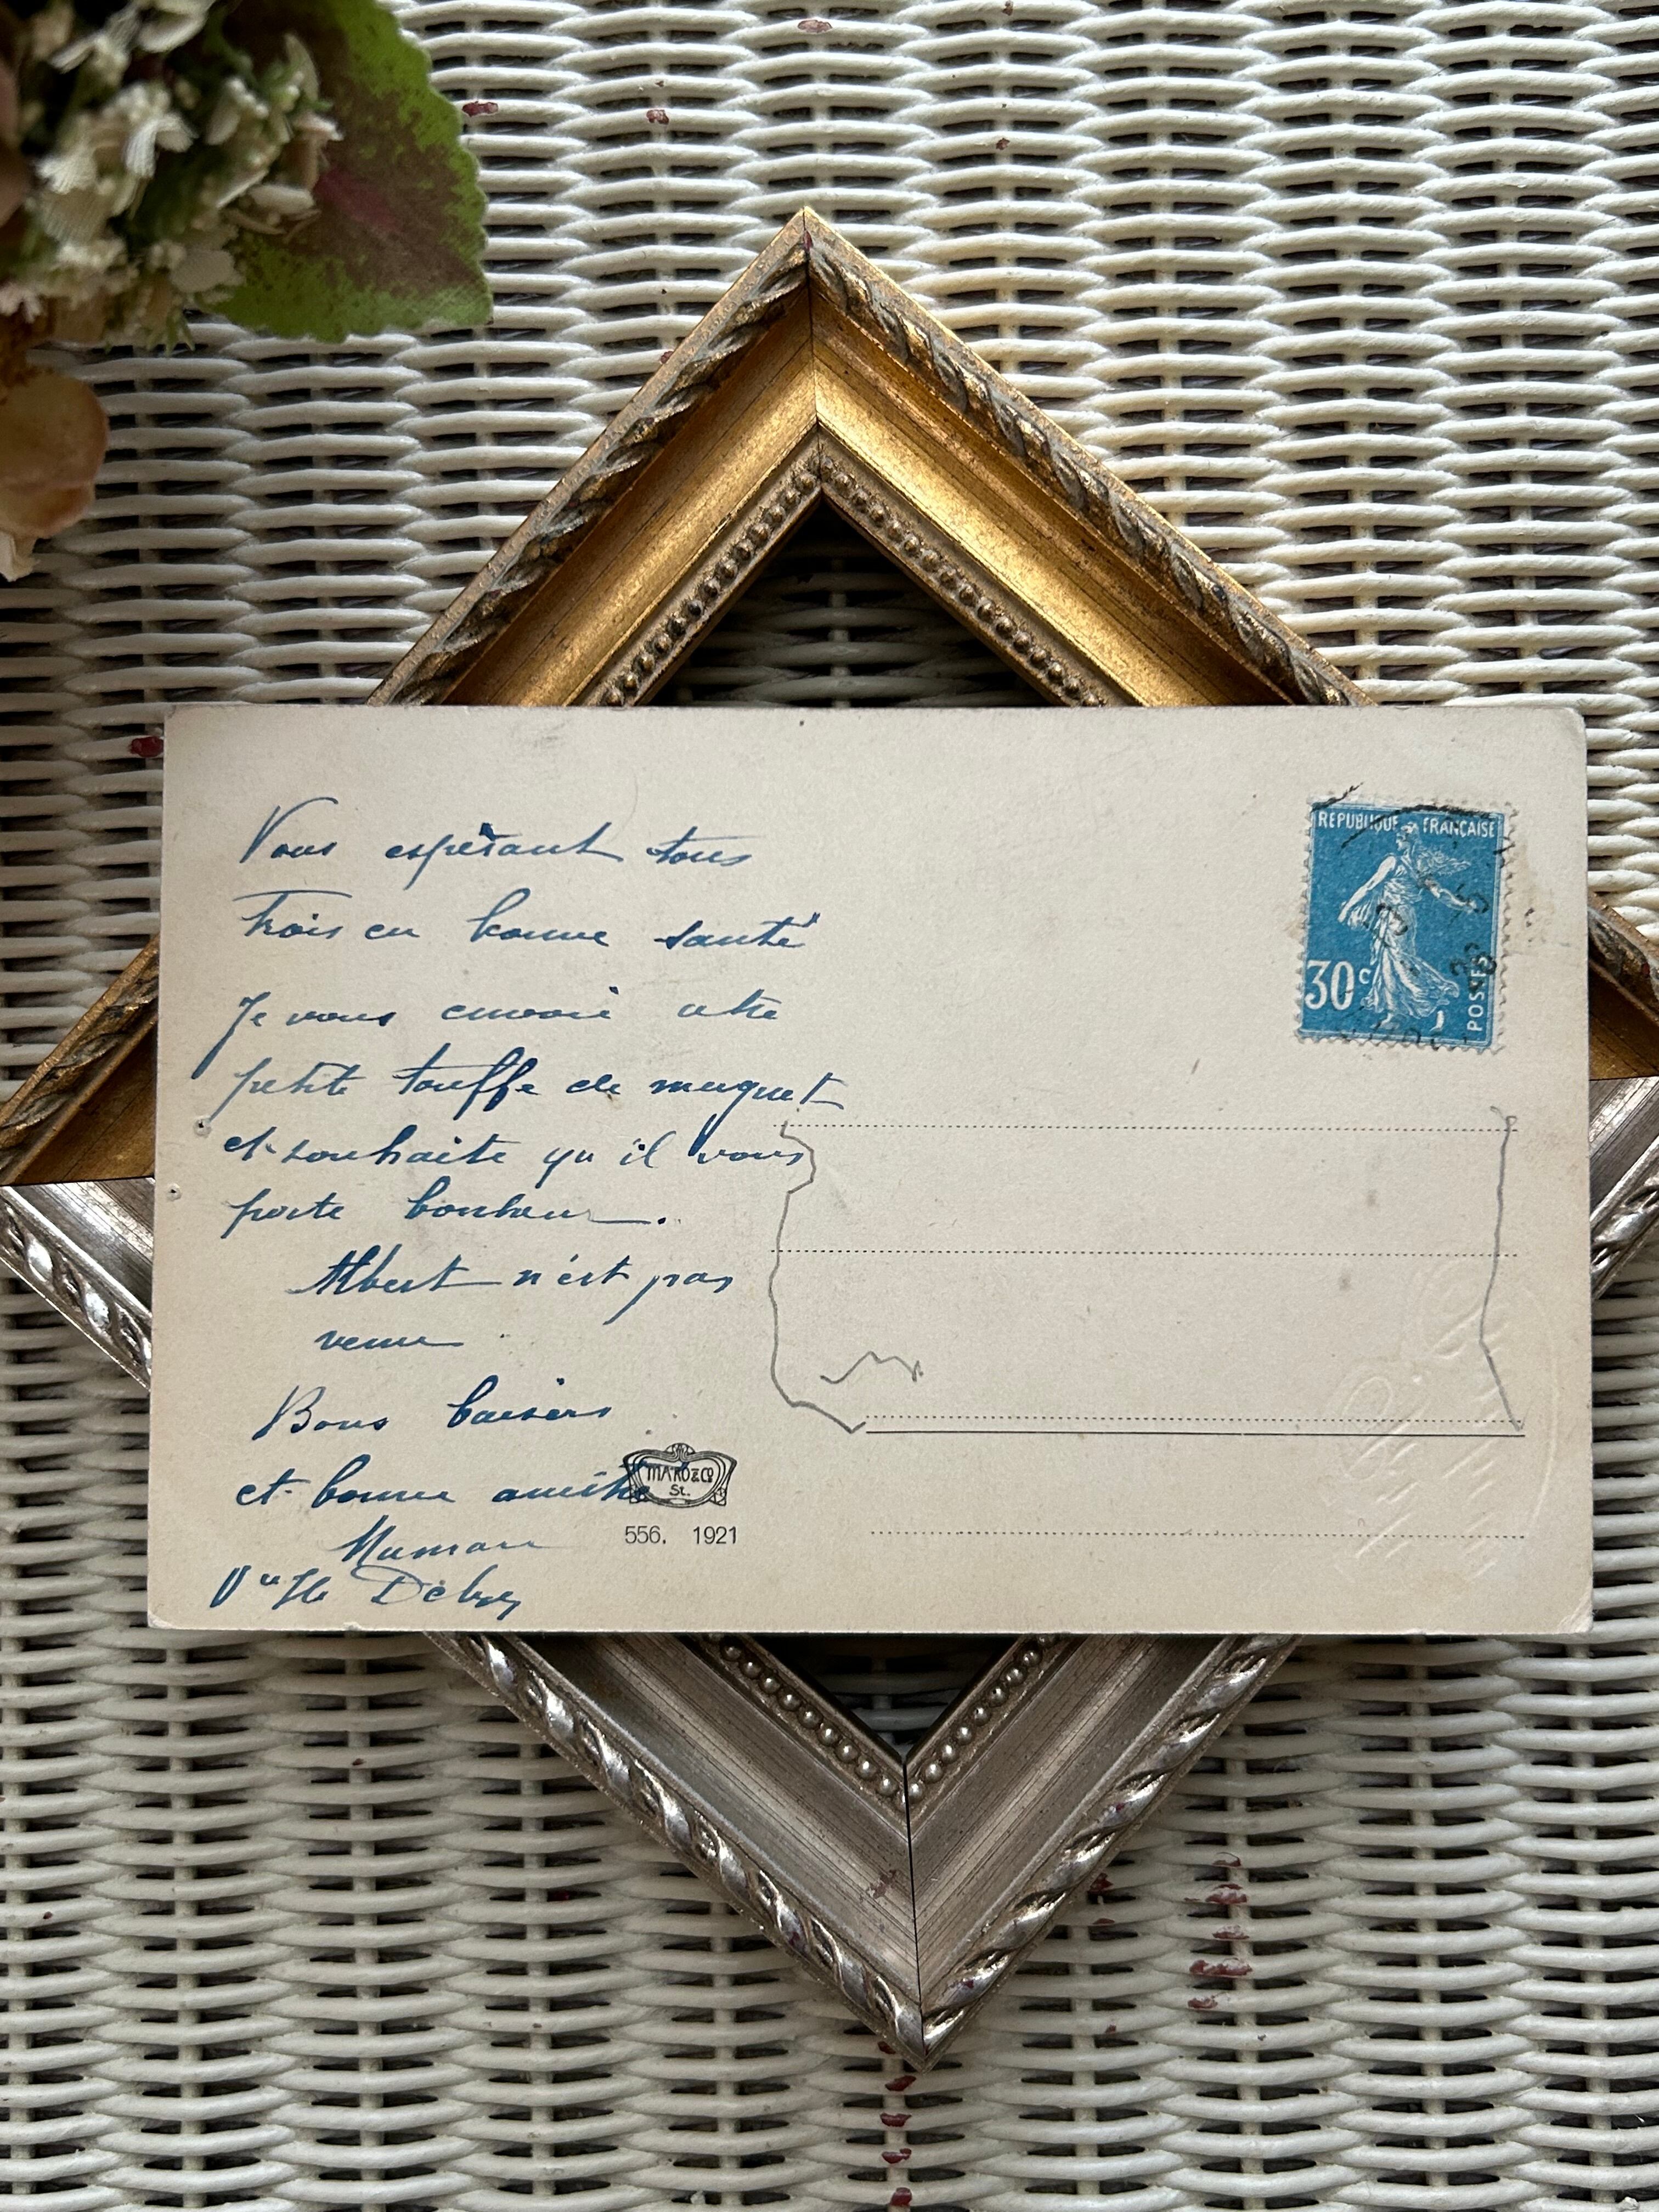 Vous espèrant tous
trois en bonne santé
Je vous envoie cette
petite touffe de muguet
et souhaite qu'il vous
porte bonheur.
Albert n'est pas
venu
Bons baisers
et bonne amitié
Maman
Vve
REPUBLIQUE FRANCAISE
30c
POSTES
556. 1921